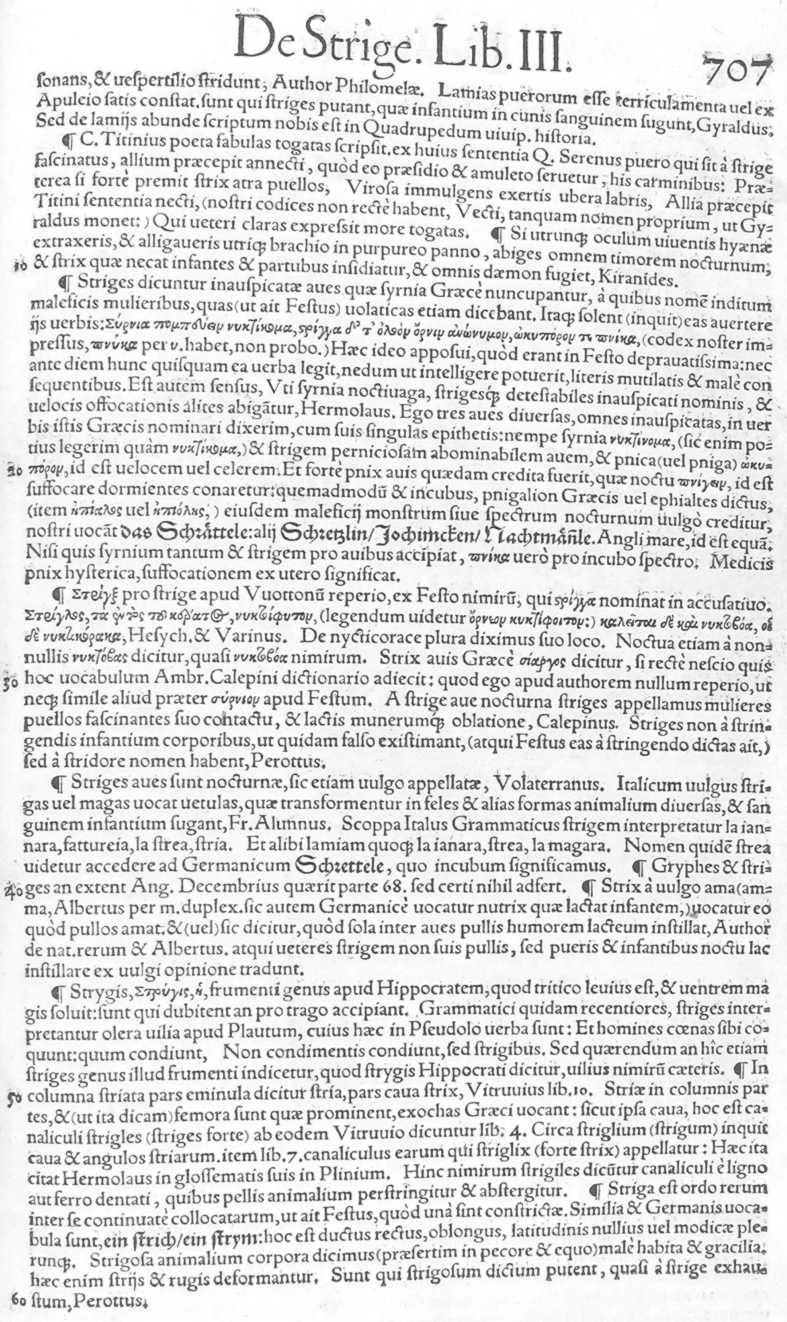 De Strige. Lib. III. 707
sonans, & uespertilio stridunt, Author Philomelæ. Lamias puerorum esse terriculamenta uel ex
Apuleio satis constat. sunt qui striges putant, quæ infantium in cunis sanguinem sugunt, Gyraldus,
Sed de lamijs abunde scriptum nobis est in Quadrupedum uiuip. historia.
¶ C. Titinius poeta fabulas togatas scripsit. ex huius sententia Q. Serenus puero qui sit à strige
fascinatus, allium præcepit annecti, quòd eo præsidio & amuleto seruetur, his carminibus: Præ-
terea si fortè premit strix atra puellos, Virosa immulgens exertis ubera labris, Allia præcepit
Titini sententia necti, (nostri codices non rectè habent, Vecti, tanquam nomen proprium, ut Gy-
raldus monet: ) Qui ueteri claras expressit more togatas. ¶ Si utrunq; oculum uiuentis hyænæ
extraxeris, & alligaueris utriq; brachio in purpureo panno, abiges omnem timorem nocturnum,
10 & strix quæ necat infantes & partubus insidiatur, & omnis dæmon fugiet, Kiranides.
¶ Striges dicuntur inauspicatæ aues quæ syrnia Græcè nuncupantur, à quibus nomē inditum
maleficis mulieribus, quas (ut ait Festus) uolaticas etiam dicebant. Itaq; solent (inquit) eas auertere
ijs uerbis: Συρνια πομπευειν νυκτικομα, στριγγα δ' τ' ολοὸν ὄρνιν ανώνυμον, ὠκυπορον τε πνικα, (codex noster im-
pressus, πνύκα per υ. habet, non probo.) Hæc ideo apposui, quòd erant in Festo deprauatissima: nec
ante diem hunc quisquam ea uerba legit, nedum ut intelligere potuerit, literis mutilatis & malè con
sequentibus. Est autem sensus, Vti syrnia noctiuaga, strigesq; detestabiles inauspicati nominis, &
uelocis offocationis alites abigātur, Hermolaus. Ego tres aues diuersas, omnes inauspicatas, in uer
bis istis Græcis nominari dixerim, cum suis singulas epithetis: nempe syrnia νυκτινομα, (sic enim po-
tius legerim quàm νυκτικομα,) & strigem perniciosam abominabilem auem, & pnica (uel pniga) ὠκυ-
20 πόρον, id est uelocem uel celerem. Et fortè pnix auis quædam credita fuerit, quæ noctu πνίγειν, id est
suffocare dormientes conaretur: quemadmodū & incubus, pnigalion Græcis uel ephialtes dictus,
(item ἠπίαλος uel ἠπόλης,) eiusdem maleficij monstrum siue spectrum nocturnum uulgò creditur,
nostri uocāt das Schrättele: alij Schretzlin/ Jochimcken/ Nachtmāñle. Angli mare, id est equā.
Nisi quis syrnium tantum & strigem pro auibus accipiat, πνίκα uerò pro incubo spectro. Medicis
pnix hysterica, suffocationem ex utero significat.
¶ Στρίγξ pro strige apud Vuottonū reperio, ex Festo nimirū, qui στρίγγα nominat in accusatiuo.
Στρίγλος, τὰ ἐντὸς τοῦ κέρατος, νυκτίφυτον, (legendum uidetur ὄρνεον νυκτίφοιτον:) καλεῖται δὲ καὶ νυκτοβόα, οἱ
δὲ νυκτικόρακα, Hesych. & Varinus. De nycticorace plura diximus suo loco. Noctua etiam à non-
nullis νυκτόβας dicitur, quasi νυκτοβόα nimirum. Strix auis Græcè σίαργος dicitur, si rectè nescio quis
30 hoc uocabulum Ambr. Calepini dictionario adiecit: quod ego apud authorem nullum reperio, ut
neq; simile aliud præter σύρνιον apud Festum. A strige aue nocturna striges appellamus mulieres
puellos fascinantes suo contactu, & lactis munerumq; oblatione, Calepinus. Striges non à strin-
gendis infantium corporibus, ut quidam falso existimant, (atqui Festus eas à stringendo dictas ait,)
sed à stridore nomen habent, Perottus.
¶ Striges aues sunt nocturnæ, sic etiam uulgo appellatæ, Volaterranus. Italicum uulgus stri-
gas uel magas uocat uetulas, quæ transformentur in feles & alias formas animalium diuersas, & san
guinem infantium sugant, Fr. Alunnus. Scoppa Italus Grammaticus strigem interpretatur la ian-
nara, fattureia, la strea, stria. Et alibi lamiam quoq; la ianara, strea, la magara. Nomen quidē strea
uidetur accedere ad Germanicum Schrettele, quo incubum significamus. ¶ Gryphes & stri-
40 ges an extent Ang. Decembrius quærit parte 68. sed certi nihil adfert. ¶ Strix à uulgo ama (am-
ma, Albertus per m. duplex. sic autem Germanicè uocatur nutrix quæ lactat infantem,) uocatur eo
quòd pullos amat. & (uel) sic dicitur, quòd sola inter aues pullis humorem lacteum instillat, Author
de nat. rerum & Albertus. atqui ueteres strigem non suis pullis, sed pueris & infantibus noctu lac
instillare ex uulgi opinione tradunt.
¶ Strygis, Στρύγις, ἡ, frumenti genus apud Hippocratem, quod tritico leuius est, & uentrem ma
gis soluit: sunt qui dubitent an pro trago accipiant. Grammatici quidam recentiores, striges inter-
pretantur olera uilia apud Plautum, cuius hæc in Pseudolo uerba sunt: Et homines cœnas sibi co-
quunt: quum condiunt, Non condimentis condiunt, sed strigibus. Sed quærendum an hîc etiam
striges genus illud frumenti indicetur, quod strygis Hippocrati dicitur, uilius nimirū cæteris. ¶ In
50 columna striata pars eminula dicitur stria, pars caua strix, Vitruuius lib. 10. Striæ in columnis par
tes, & (ut ita dicam) femora sunt quæ prominent, exochas Græci uocant: sicut ipsa caua, hoc est ca-
naliculi strigles (striges forte) ab eodem Vitruuio dicuntur lib. 4. Circa striglium (strigum) inquit
caua & angulos striarum. item lib. 7. canaliculus earum qui striglix (forte strix) appellatur: Hæc ita
citat Hermolaus in glossematis suis in Plinium. Hinc nimirum strigiles dicūtur canaliculi è ligno
aut ferro dentati, quibus pellis animalium perstringitur & abstergitur. ¶ Striga est ordo rerum
inter se continuatè collocatarum, ut ait Festus, quòd unà sint constrictæ. Similia & Germanis uoca-
bula sunt, ein strich/ ein strym: hoc est ductus rectus, oblongus, latitudinis nullius uel modicæ ple-
runq;. Strigosa animalium corpora dicimus (præsertim in pecore & equo) malè habita & gracilia,
hæc enim strijs & rugis deformantur. Sunt qui strigosum dictum putent, quasi à strige exhau-
60 stum, Perottus.